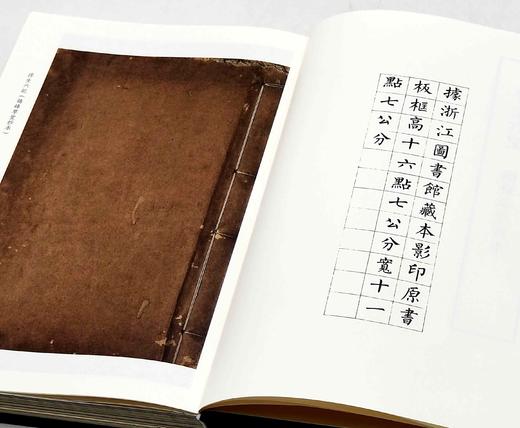 據浙江圖書館藏本影印原書
板框高十六點七公分寬十一
點七公分